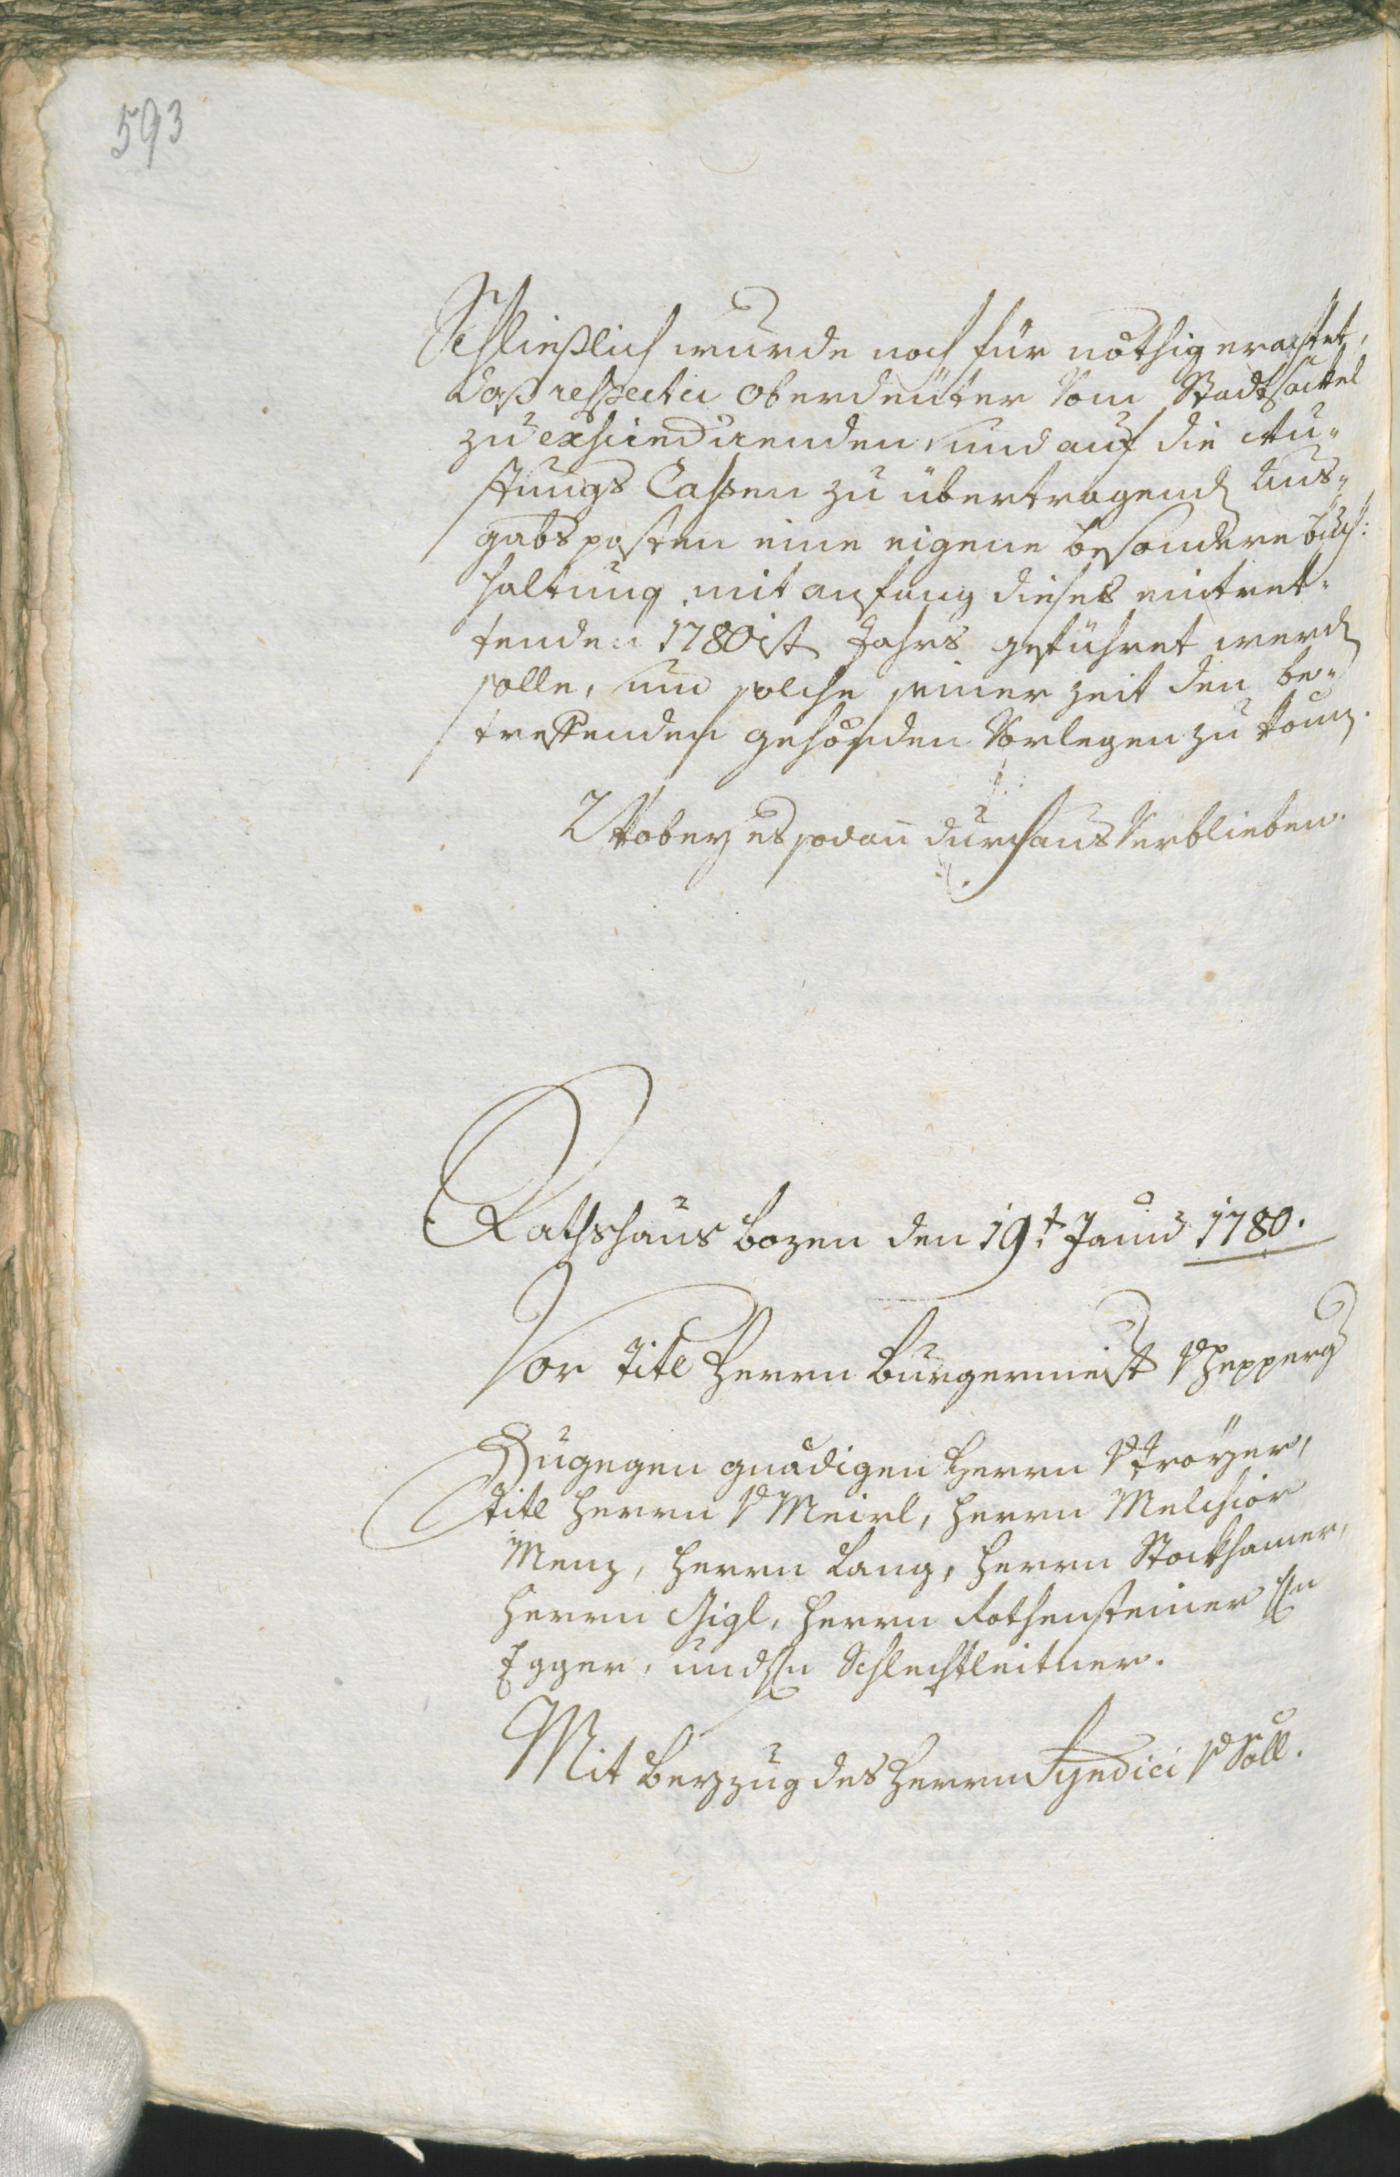 593
Schließlich wurde noch für nöthig erachtet,
daß respectu oberdeuter vom Stadtsäckel
zu exscindirenden, und auf die
stungs Cassen zu übertragend Aus-
gabs posten eine eigene besondere buch:
haltung mit anfang dieses eintret-
tenden 1780ist Jahrs geführet werd
solle, um solche seiner zeit den be-
treffenden gehörden Vorlegen zu könn.
Wobey es sodann durchaus Verblieben.
Rathshaus bozen den 19.t Jannr 1780.
Vor Titl Herrn Burgermeist v Hepperg
Zugegen gnädigen Herrn v Troÿer,
Titl Herrn v Meirl, Herrn Melchior
Menz, Herrn Lang, Herrn Stockhamer,
Herrn Gigl, Herrn Rothensteiner Hn
Egger, und Hn Schlechtleitner.
Mit Beyzug des Herrn Syndici v Söll.